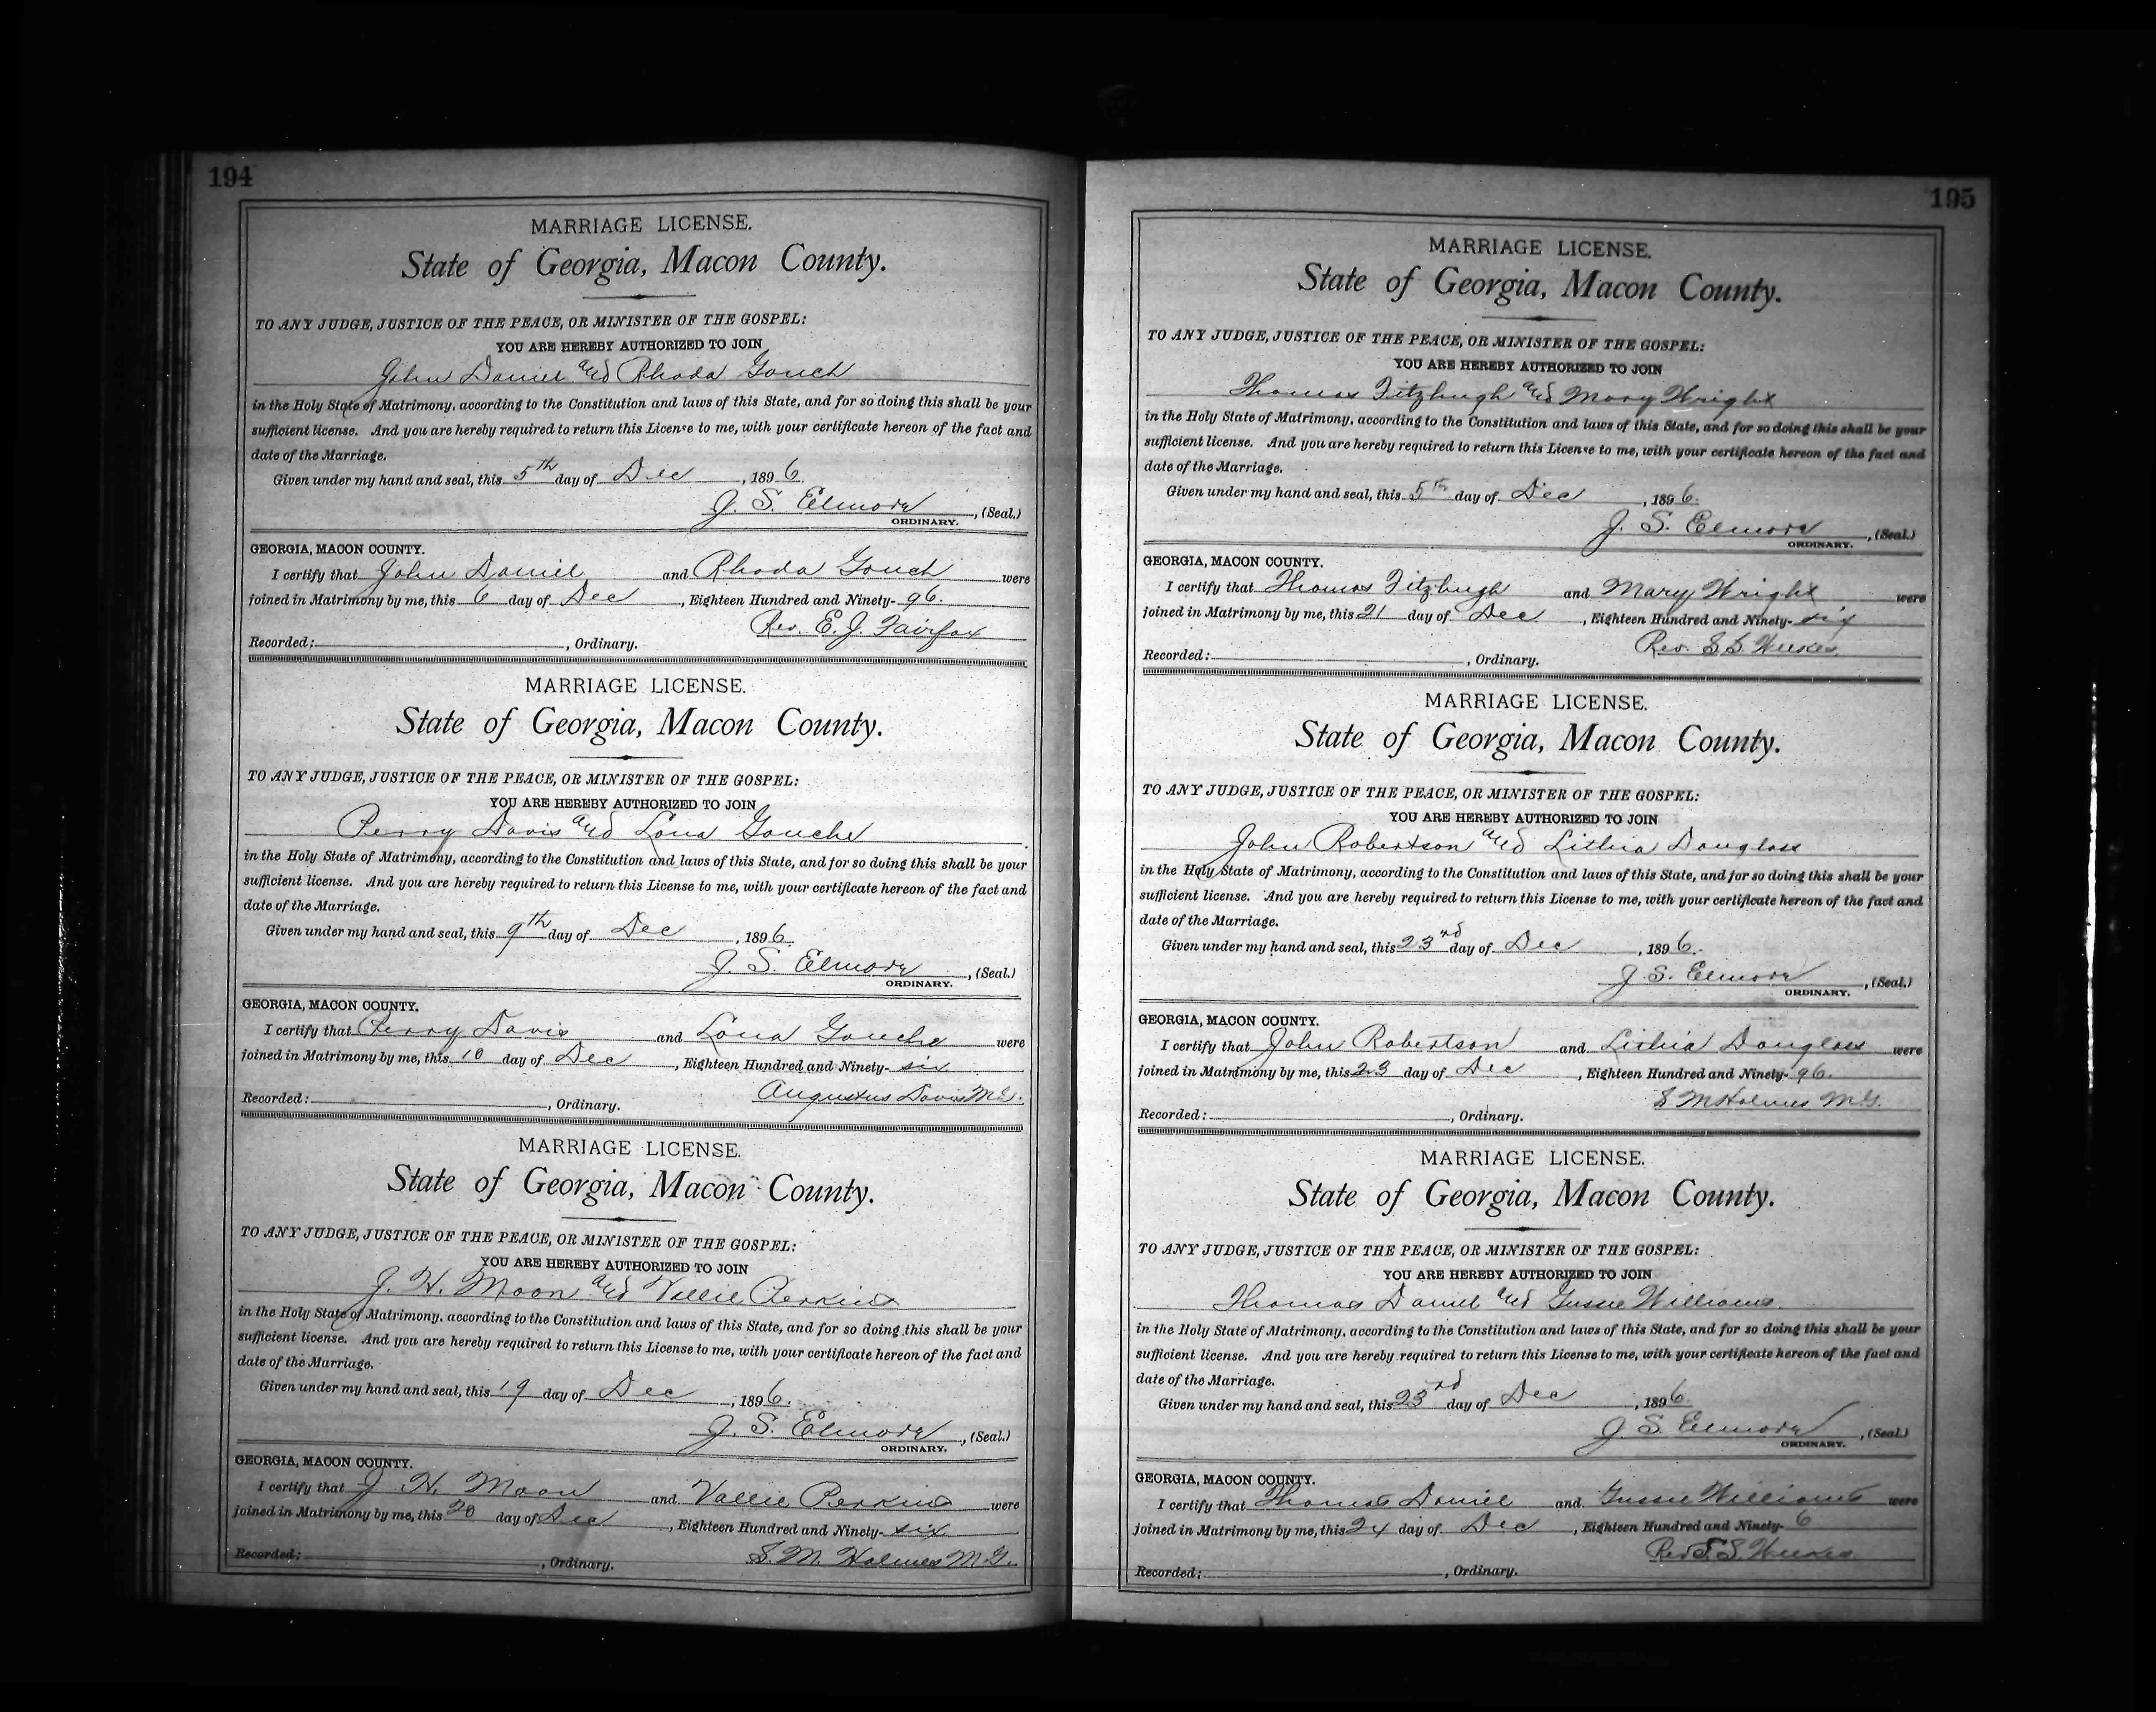 194
MARRIAGE LICENSE.
State of Georgia, Macon County.
TO ANY JUDGE, JUSTICE OF THE PEACE, OR MINISTER OF THE GOSPEL:
YOU ARE HEREBY AUTHORIZED TO JOIN
John Daniel and Rhoda Gouch
in the Holy State of Matrimony, according to the Constitution and laws of this State, and for so doing this shall be your
sufficient license. And you are hereby required to return this License to me, with your certificate hereon of the fact and
date of the Marriage.
Given under my hand and seal, this 5th day of Dec, 1896.
J. S. Elmore, (Seal.)
ORDINARY.
GEORGIA, MACON COUNTY.
I certify that John Daniel and Rhoda Gouch were
joined in Matrimony by me, this 6 day of Dec, Eighteen Hundred and Ninety-96.
Rev. E. J. Fairfax
Recorded:, Ordinary.
MARRIAGE LICENSE.
State of Georgia, Macon County.
TO ANY JUDGE, JUSTICE OF THE PEACE, OR MINISTER OF THE GOSPEL:
YOU ARE HEREBY AUTHORIZED TO JOIN
Perry Davis and Lona Gouche
in the Holy State of Matrimony, according to the Constitution and laws of this State, and for so doing this shall be your
sufficient license. And you are hereby required to return this License to me, with your certificate hereon of the fact and
date of the Marriage.
Given under my hand and seal, this 9th day of Dec, 1896.
J. S. Elmore, (Seal.)
ORDINARY.
GEORGIA, MACON COUNTY.
I certify that Perry Davis and Lona Gouche were
joined in Matrimony by me, this 10 day of Dec, Eighteen Hundred and Ninety-six
Augustus Davis M.G.
Recorded:, Ordinary.
MARRIAGE LICENSE.
State of Georgia, Macon County.
TO ANY JUDGE, JUSTICE OF THE PEACE, OR MINISTER OF THE GOSPEL:
YOU ARE HEREBY AUTHORIZED TO JOIN
J. H. Moon and Vallie Perkins
in the Holy State of Matrimony, according to the Constitution and laws of this State, and for so doing this shall be your
sufficient license. And you are hereby required to return this License to me, with your certificate hereon of the fact and
date of the Marriage.
Given under my hand and seal, this 19 day of Dec, 1896.
J. S. Elmore, (Seal.)
ORDINARY.
GEORGIA, MACON COUNTY.
I certify that J. H. Moon and Vallie Perkins were
joined in Matrimony by me, this 20 day of Dec, Eighteen Hundred and Ninety-six
S. M. Holmes M.G.
Recorded:, Ordinary.
195
MARRIAGE LICENSE.
State of Georgia, Macon County.
TO ANY JUDGE, JUSTICE OF THE PEACE, OR MINISTER OF THE GOSPEL:
YOU ARE HEREBY AUTHORIZED TO JOIN
Thomas Fitzhugh and Mary Wright
in the Holy State of Matrimony, according to the Constitution and laws of this State, and for so doing this shall be your
sufficient license. And you are hereby required to return this License to me, with your certificate hereon of the fact and
date of the Marriage.
Given under my hand and seal, this 5th day of Dec, 1896.
J. S. Elmore, (Seal.)
ORDINARY.
GEORGIA, MACON COUNTY.
I certify that Thomas Fitzhugh and Mary Wright were
joined in Matrimony by me, this 21 day of Dec, Eighteen Hundred and Ninety-six
Rev. S. S.
Recorded:, Ordinary.
MARRIAGE LICENSE.
State of Georgia, Macon County.
TO ANY JUDGE, JUSTICE OF THE PEACE, OR MINISTER OF THE GOSPEL:
YOU ARE HEREBY AUTHORIZED TO JOIN
John Robertson and Lithia Douglass
in the Holy State of Matrimony, according to the Constitution and laws of this State, and for so doing this shall be your
sufficient license. And you are hereby required to return this License to me, with your certificate hereon of the fact and
date of the Marriage.
Given under my hand and seal, this 23rd day of Dec, 1896.
J. S. Elmore, (Seal.)
ORDINARY.
GEORGIA, MACON COUNTY.
I certify that John Robertson and Lithia Douglass were
joined in Matrimony by me, this 23 day of Dec, Eighteen Hundred and Ninety-96.
S M Holmes M.G.
Recorded:, Ordinary.
MARRIAGE LICENSE.
State of Georgia, Macon County.
TO ANY JUDGE, JUSTICE OF THE PEACE, OR MINISTER OF THE GOSPEL:
YOU ARE HEREBY AUTHORIZED TO JOIN
Thomas Daniel and Gussie Williams
in the Holy State of Matrimony, according to the Constitution and laws of this State, and for so doing this shall be your
sufficient license. And you are hereby required to return this License to me, with your certificate hereon of the fact and
date of the Marriage.
Given under my hand and seal, this 23rd day of Dec, 1896
J. S. Elmore, (Seal.)
ORDINARY.
GEORGIA, MACON COUNTY.
I certify that Thomas Daniel and Gussie Williams were
joined in Matrimony by me, this 24 day of Dec, Eighteen Hundred and Ninety-6
Rev S. S.
Recorded:, Ordinary.